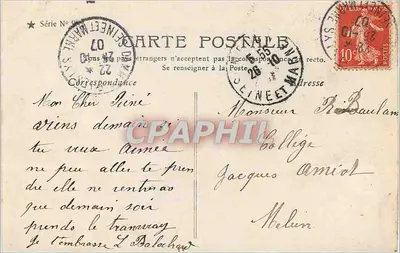 ★ Série N°
CARTE POSTALE
Tous les pays étrangers n'acceptent pas la correspondance au recto.
Se renseigner à la Poste
Correspondance
Adresse
SEINE ET MARNE
07
22
SEINE ET MARNE
26 10
10
CPAPHIL
Mon Cher
viens demain
tu veux Aimée
ne peu aller te pren
dre elle ne rentrera
que demain soir
prends le tramway
Je t'embrasse L
Monsieur R
Collège
Jacques Amiot
Melun